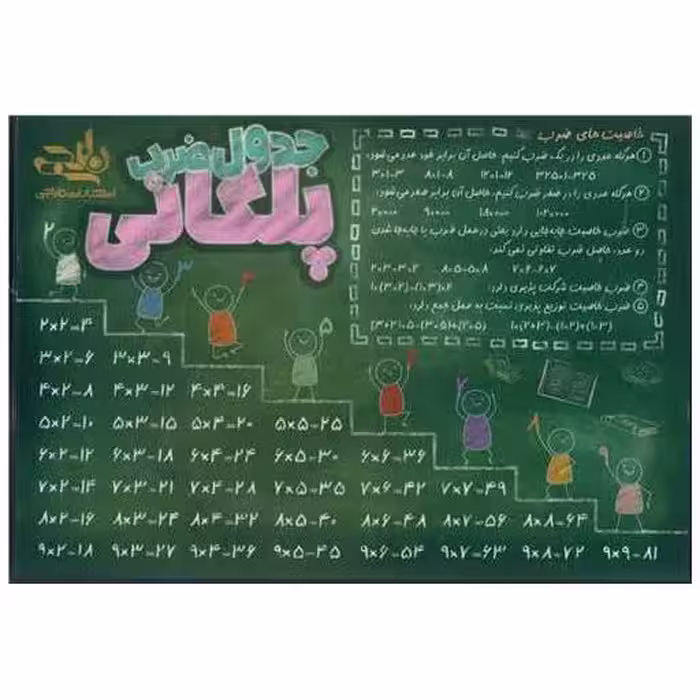 جدول ضرب
پلکانی
خاصیت های ضرب
۱ هرگاه عددی را در یک ضرب کنیم، حاصل آن برابر خود عدد می‌شود:
۲ هرگاه عددی را در صفر ضرب کنیم، حاصل آن برابر صفر می‌شود:
۳ ضرب خاصیت جابه‌جایی دارد یعنی در عمل ضرب با جابه‌جا شدن
دو عدد، حاصل ضرب تفاوتی نمی‌کند:
۴ ضرب خاصیت شرکت پذیری دارد:
۵ ضرب خاصیت توزیع پذیری نسبت به عمل جمع دارد:
۲
۳
۴
۵
۶
۷
۸
۹
۲×۲=۴
۳×۲=۶ ۳×۳=۹
۴×۲=۸ ۴×۳=۱۲ ۴×۴=۱۶
۵×۲=۱۰ ۵×۳=۱۵ ۵×۴=۲۰ ۵×۵=۲۵
۶×۲=۱۲ ۶×۳=۱۸ ۶×۴=۲۴ ۶×۵=۳۰ ۶×۶=۳۶
۷×۲=۱۴ ۷×۳=۲۱ ۷×۴=۲۸ ۷×۵=۳۵ ۷×۶=۴۲ ۷×۷=۴۹
۸×۲=۱۶ ۸×۳=۲۴ ۸×۴=۳۲ ۸×۵=۴۰ ۸×۶=۴۸ ۸×۷=۵۶ ۸×۸=۶۴
۹×۲=۱۸ ۹×۳=۲۷ ۹×۴=۳۶ ۹×۵=۴۵ ۹×۶=۵۴ ۹×۷=۶۳ ۹×۸=۷۲ ۹×۹=۸۱